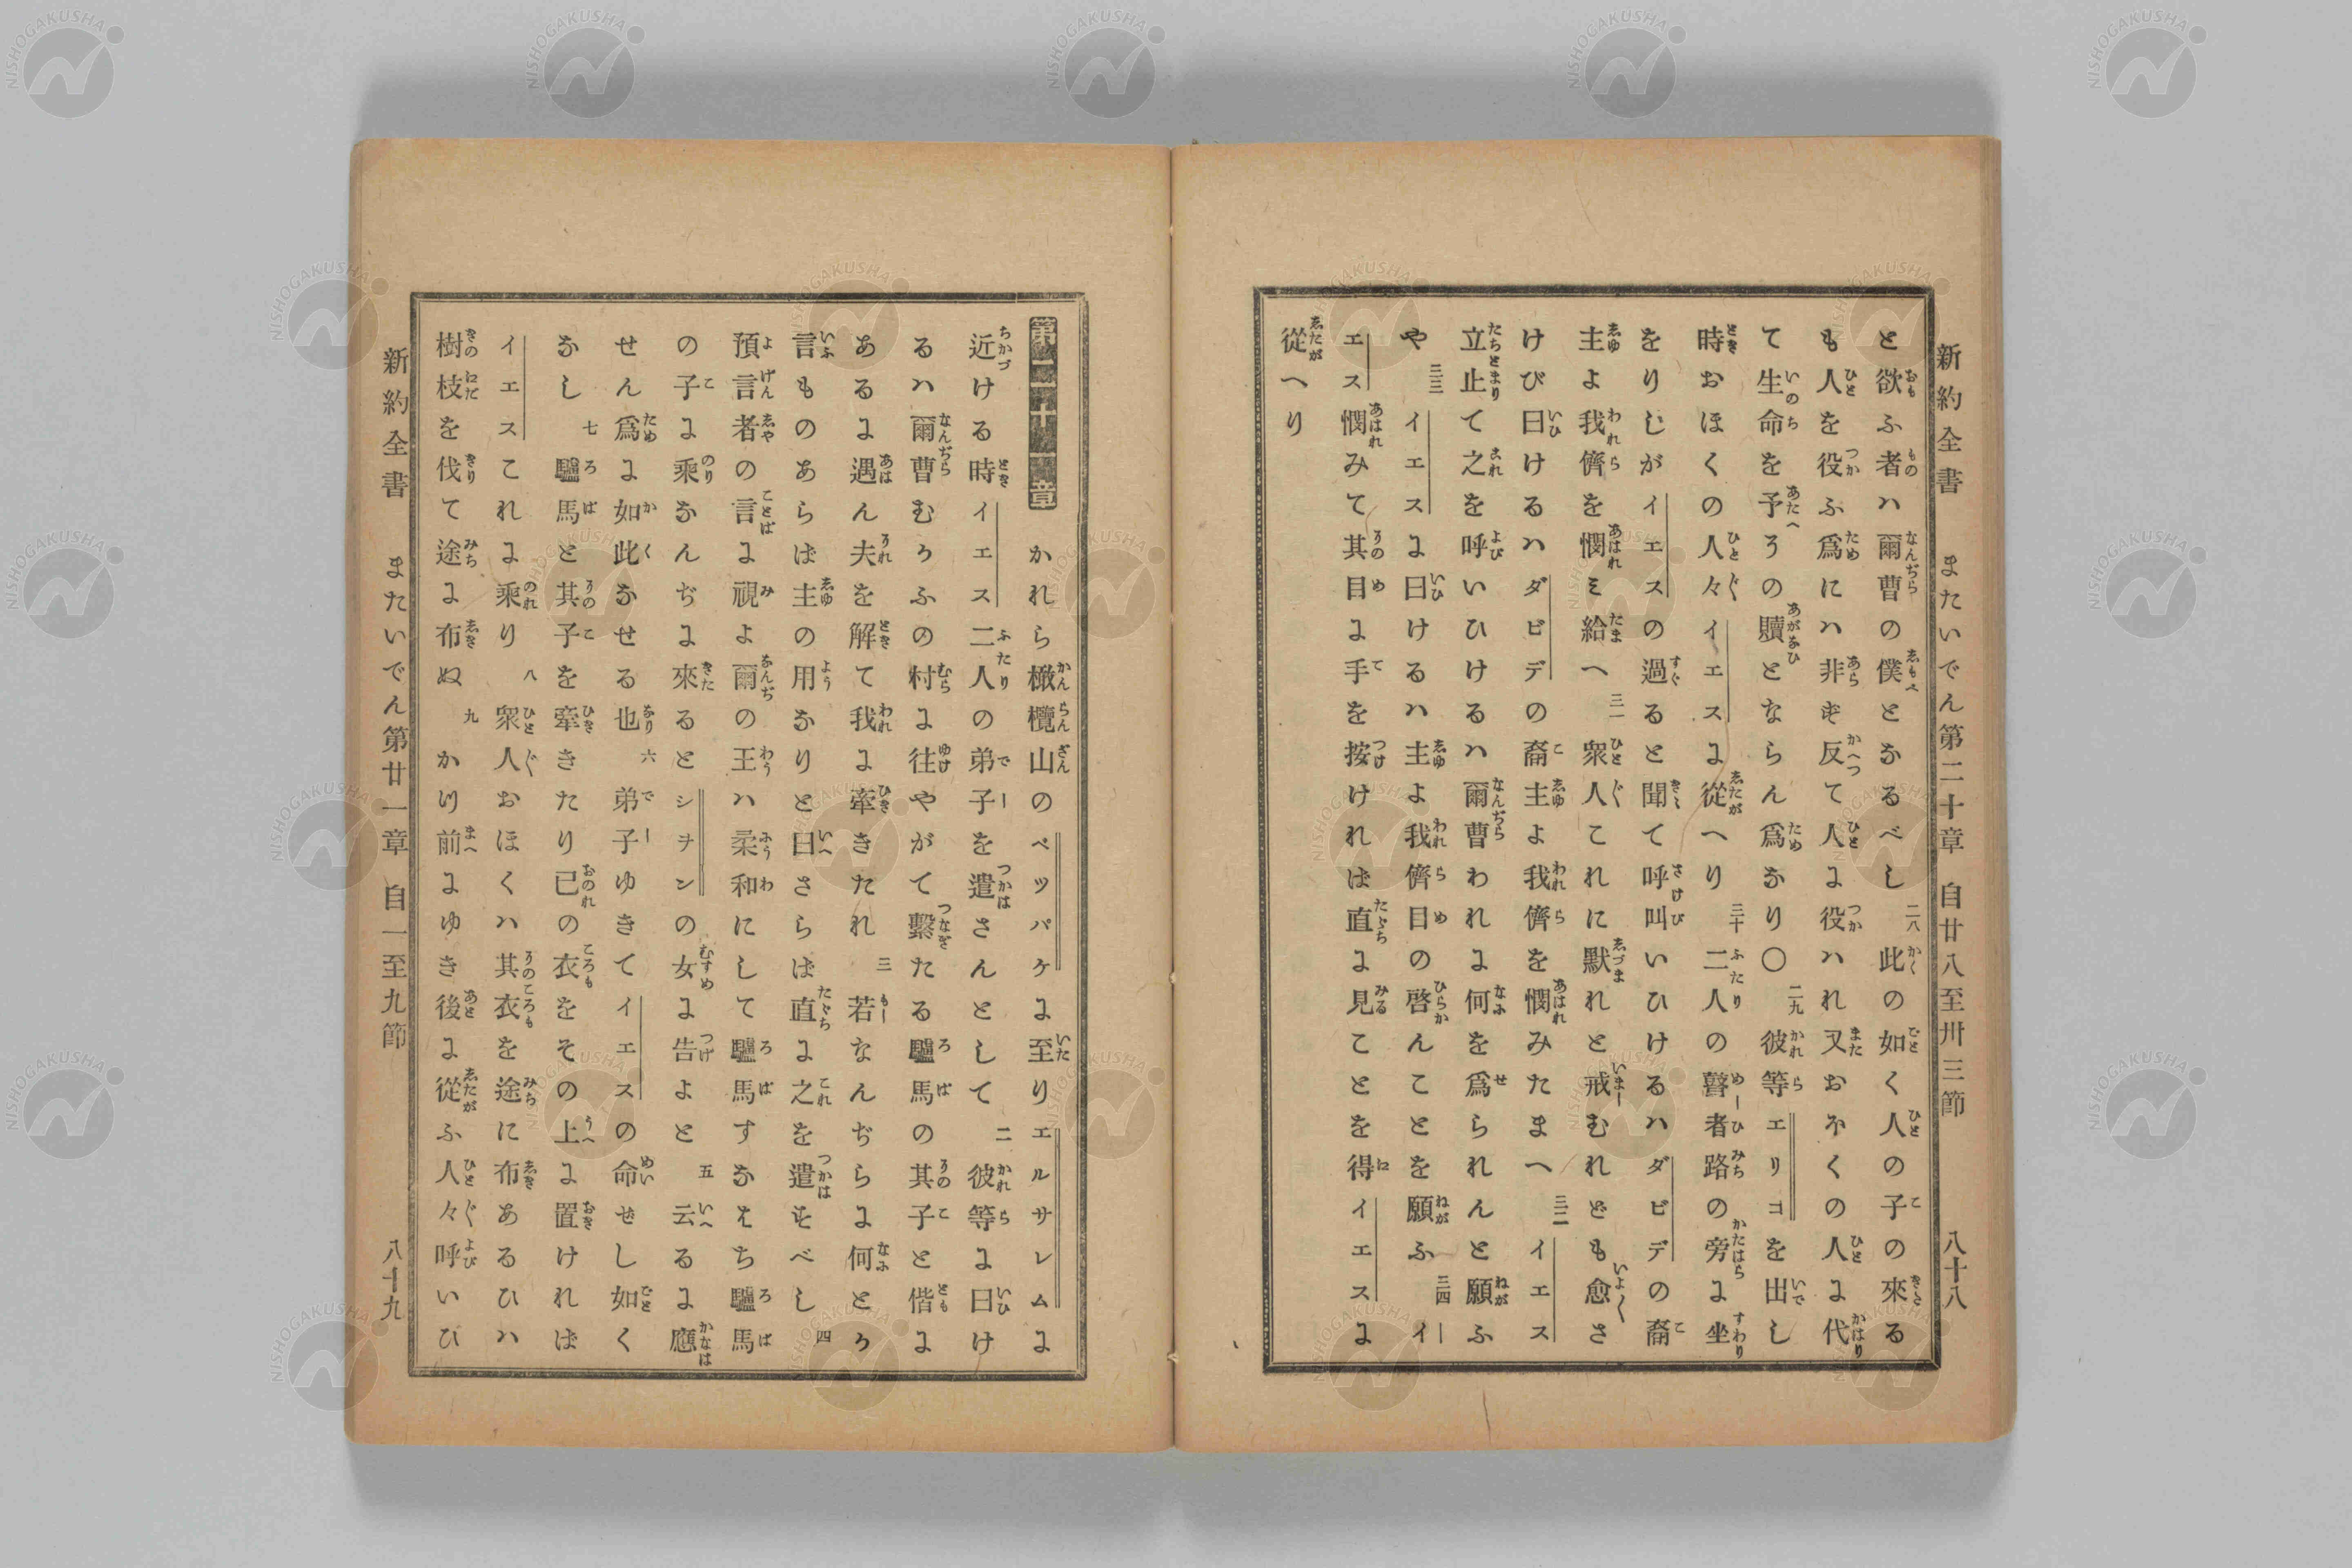 新約全書 またいでん第二十章 自廿八至卅三節 八十八
と欲ふ者ハ爾曹の僕となるべし二八此の如く人の子の來る
も人を役ふ爲にハ非ず反て人に役ハれ又おほくの人に代
て生命を予その贖とならん爲なり〇二九彼等エリコを出し
時おほくの人々イエスに從へり三十二人の瞽者路の旁に坐
をりしがイエスの過ると聞て呼叫いひけるハダビデの裔
主よ我儕を憫ミ給へ三一衆人これに默れと戒むれども愈さ
けび曰けるハダビデの裔主よ我儕を憫みたまへ三二イエス
立止て之を呼いひけるハ爾曹われに何を爲られんと願ふ
や三三イエスに曰けるハ主よ我儕目の啓んことを願ふ三四イ
エス憫みて其目に手を按ければ直に見ことを得イエスに
從へり
第二十一章 かれら橄欖山のベツパゲに至りエルサレムに
近ける時イエス二人の弟子を遣さんとして二彼等に曰け
るハ爾曹むかふの村に往やがて繫たる驢馬の其子と偕に
あるに遇ん夫を解て我に牽きたれ三若なんぢらに何とか
言ものあらば主の用なりと曰さらば直に之を遣すべし四
預言者の言に視よ爾の王ハ柔和にして驢馬すなはち驢馬
の子に乘なんぢに來るとシヲンの女に告よと五云るに應
せん爲に如此なせる也六弟子ゆきてイエスの命ぜし如く
なし七驢馬と其子を牽きたり己の衣をその上に置ければ
イエスこれに乘り八衆人おほくハ其衣を途に布あるひハ
樹枝を伐て途に布ぬ九かつ前にゆき後に從ふ人々呼いひ
新約全書 またいでん第廿一章 自一至九節 八十九